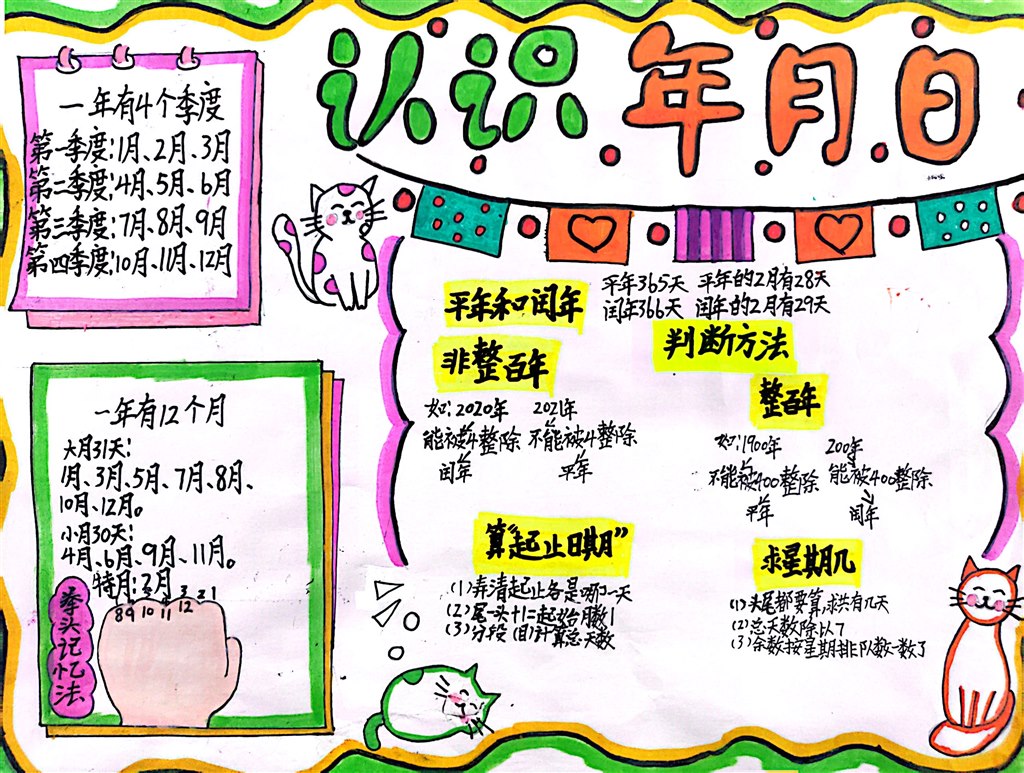 认识年月日
一年有4个季度
第一季度:1月、2月、3月
第二季度:4月、5月、6月
第三季度:7月、8月、9月
第四季度:10月、11月、12月
一年有12个月
大月31天:
1月、3月、5月、7月、8月、
10月、12月。
小月30天:
4月、6月、9月、11月。
特月:2月
拳头记忆法
3 2 1
8 9 10 11 12
平年和闰年
平年365天 平年的2月有28天
闰年366天 闰年的2月有29天
判断方法
非整百年
如:2020年 2021年
能被4整除 不能被4整除
闰年 平年
整百年
如:1900年 200年
不能被400整除 能被400整除
平年 闰年
算“起止日期”
(1)弄清起止各是哪一天
(2)尾一头十1二起始月数1
(3)分段 计算总天数
求星期几
(1)头尾都要算,求共有几天
(2)总天数除以7
(3)余数按星期排队数一数了